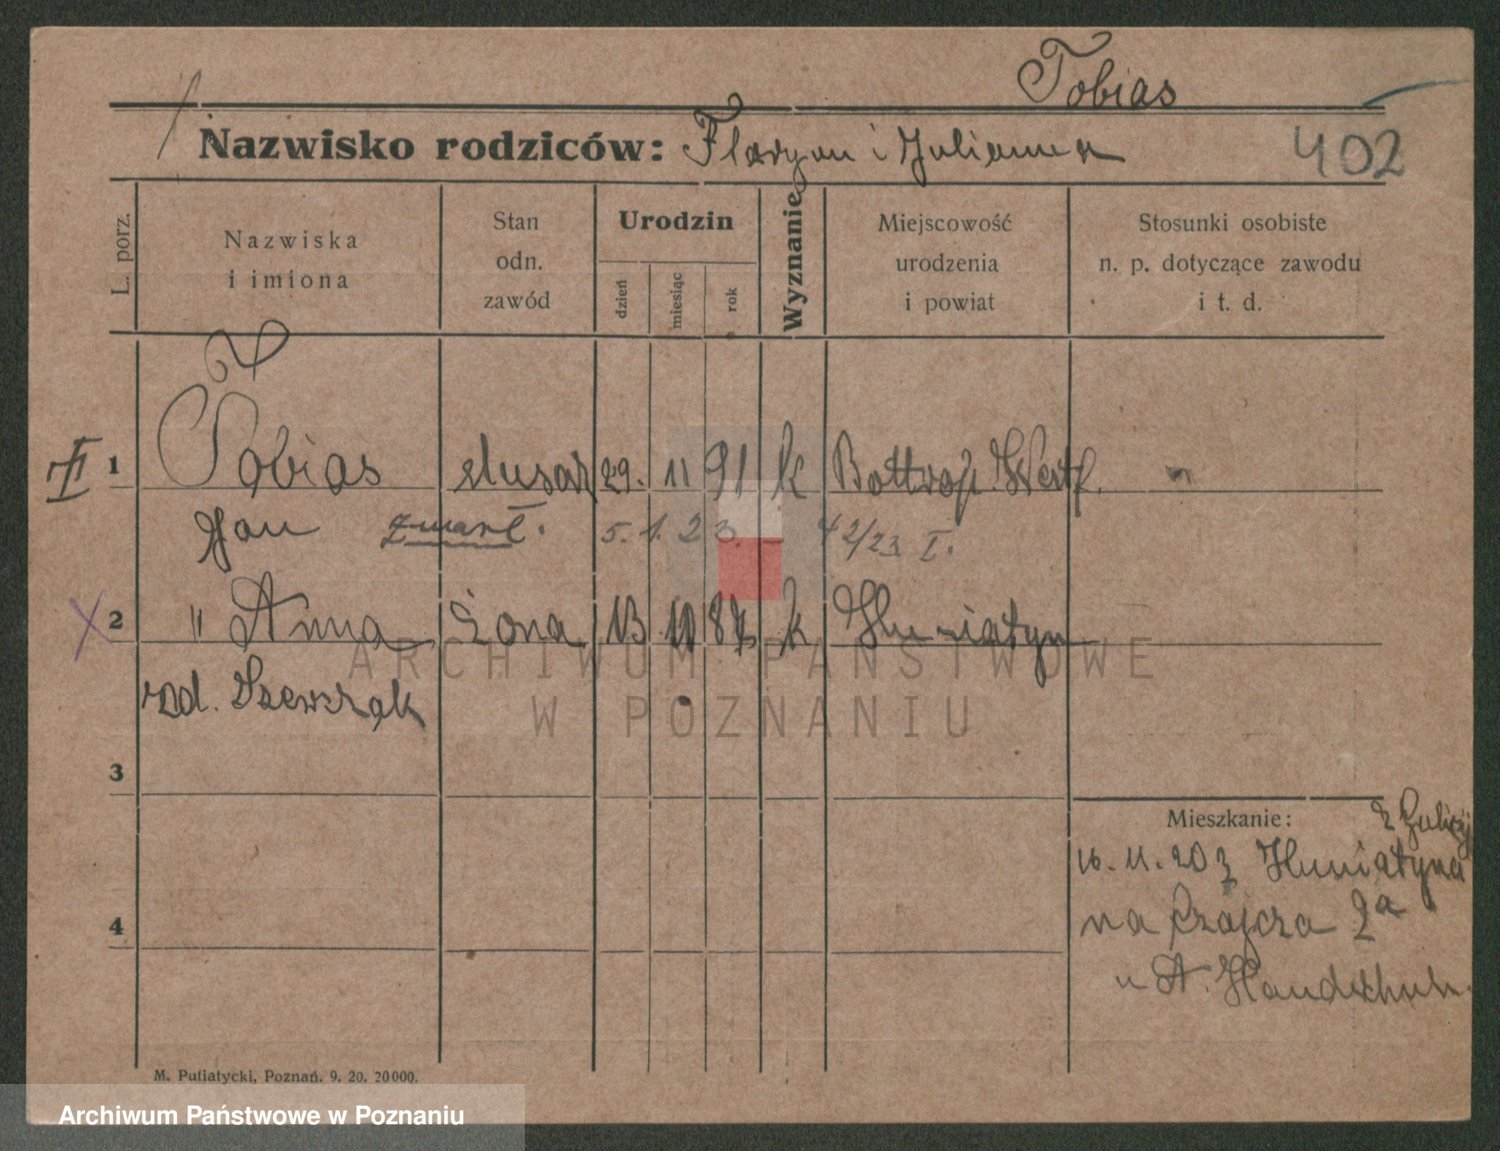 Tobias
Nazwisko rodziców: Floryan i Julianna
402
L. porz.
Nazwiska i imiona
Stan odn. zawód
Urodzin
dzień
miesiąc
rok
Wyznanie
Miejscowość urodzenia i powiat
Stosunki osobiste n. p. dotyczące zawodu i t. d.
II 1 Tobias ślusarz 29. 11 91 k Bottrop Westf.
Jan zmarł. 5. 1. 23. — 42/23 I.
2 " Anna żona 13 10 k Husiatyn
rod. Szewczak
3
Mieszkanie:
z Galicji
16. 11. 20 z Husiatyna
4
na Czajcza 2a
u A. Handschuh.
M. Putiatycki, Poznań. 9. 20. 20000.
ARCHIWUM PAŃSTWOWE
W POZNANIU
Archiwum Państwowe w Poznaniu